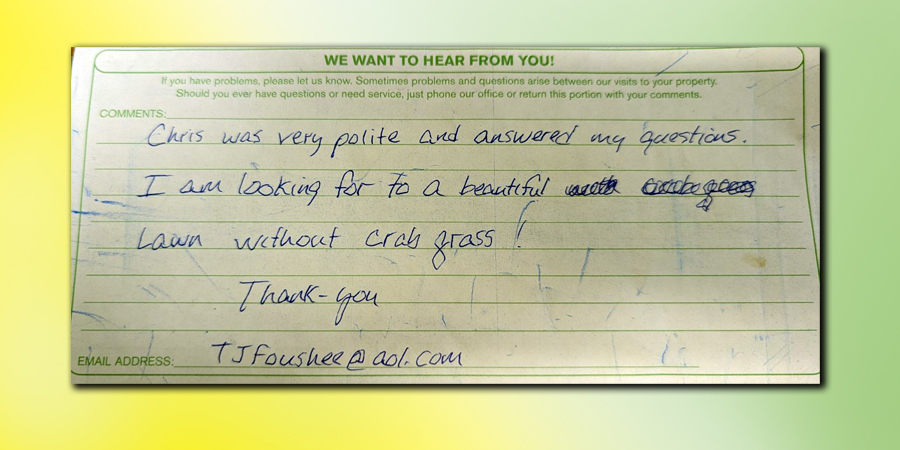 WE WANT TO HEAR FROM YOU!
If you have problems, please let us know. Sometimes problems and questions arise between our visits to your property.
Should you ever have questions or need service, just phone our office or return this portion with your comments.
COMMENTS:
Chris was very polite and answered my questions.
I am looking for to a beautiful
Lawn without crab grass!
Thank-you
EMAIL ADDRESS: TJFoushee@aol.com